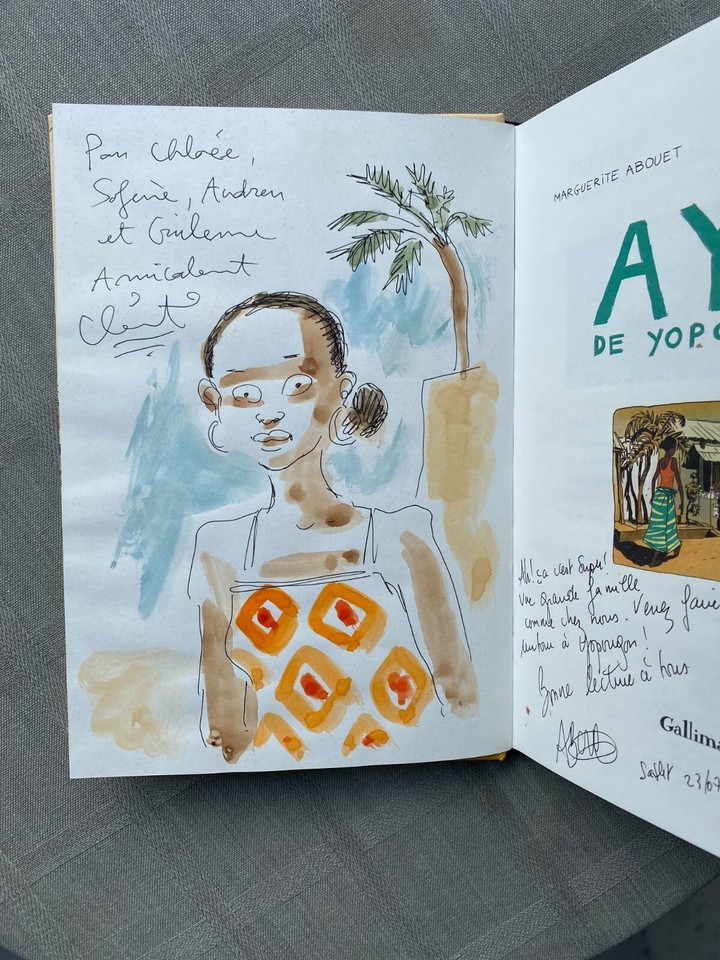 Pour Chloée,
Sofène, Audren
et Guilemne
Amicalement
Clément
MARGUERITE ABOUET
AY
DE YOPO
Ah! ça c'est Super!
une grande famille
comme chez nous. Venez faire
un tour à Yopougon!
Bonne lecture à tous
Gallima
23/07